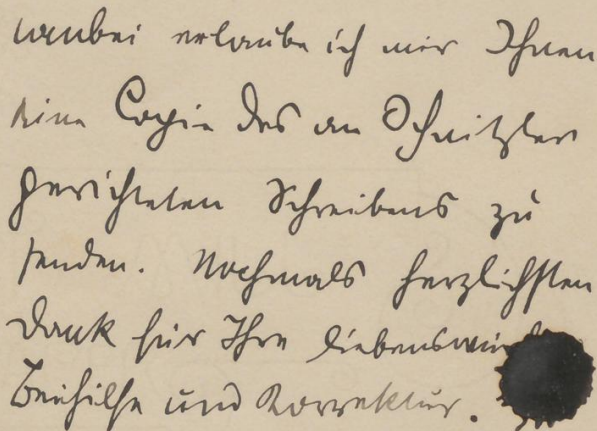 anbei erlaube ich mir Ihnen
eine Copie des an Schnitzler
gerichteten Schreibens zu
senden. Nochmals herzlichsten
Dank für Ihre
Beihilfe und Korrektur.